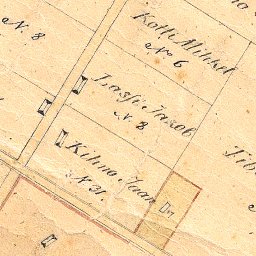 N. 8
Kotli Mihkel
No 6
Lassi Jacob
N. 8
Kihno Jaan
N 31